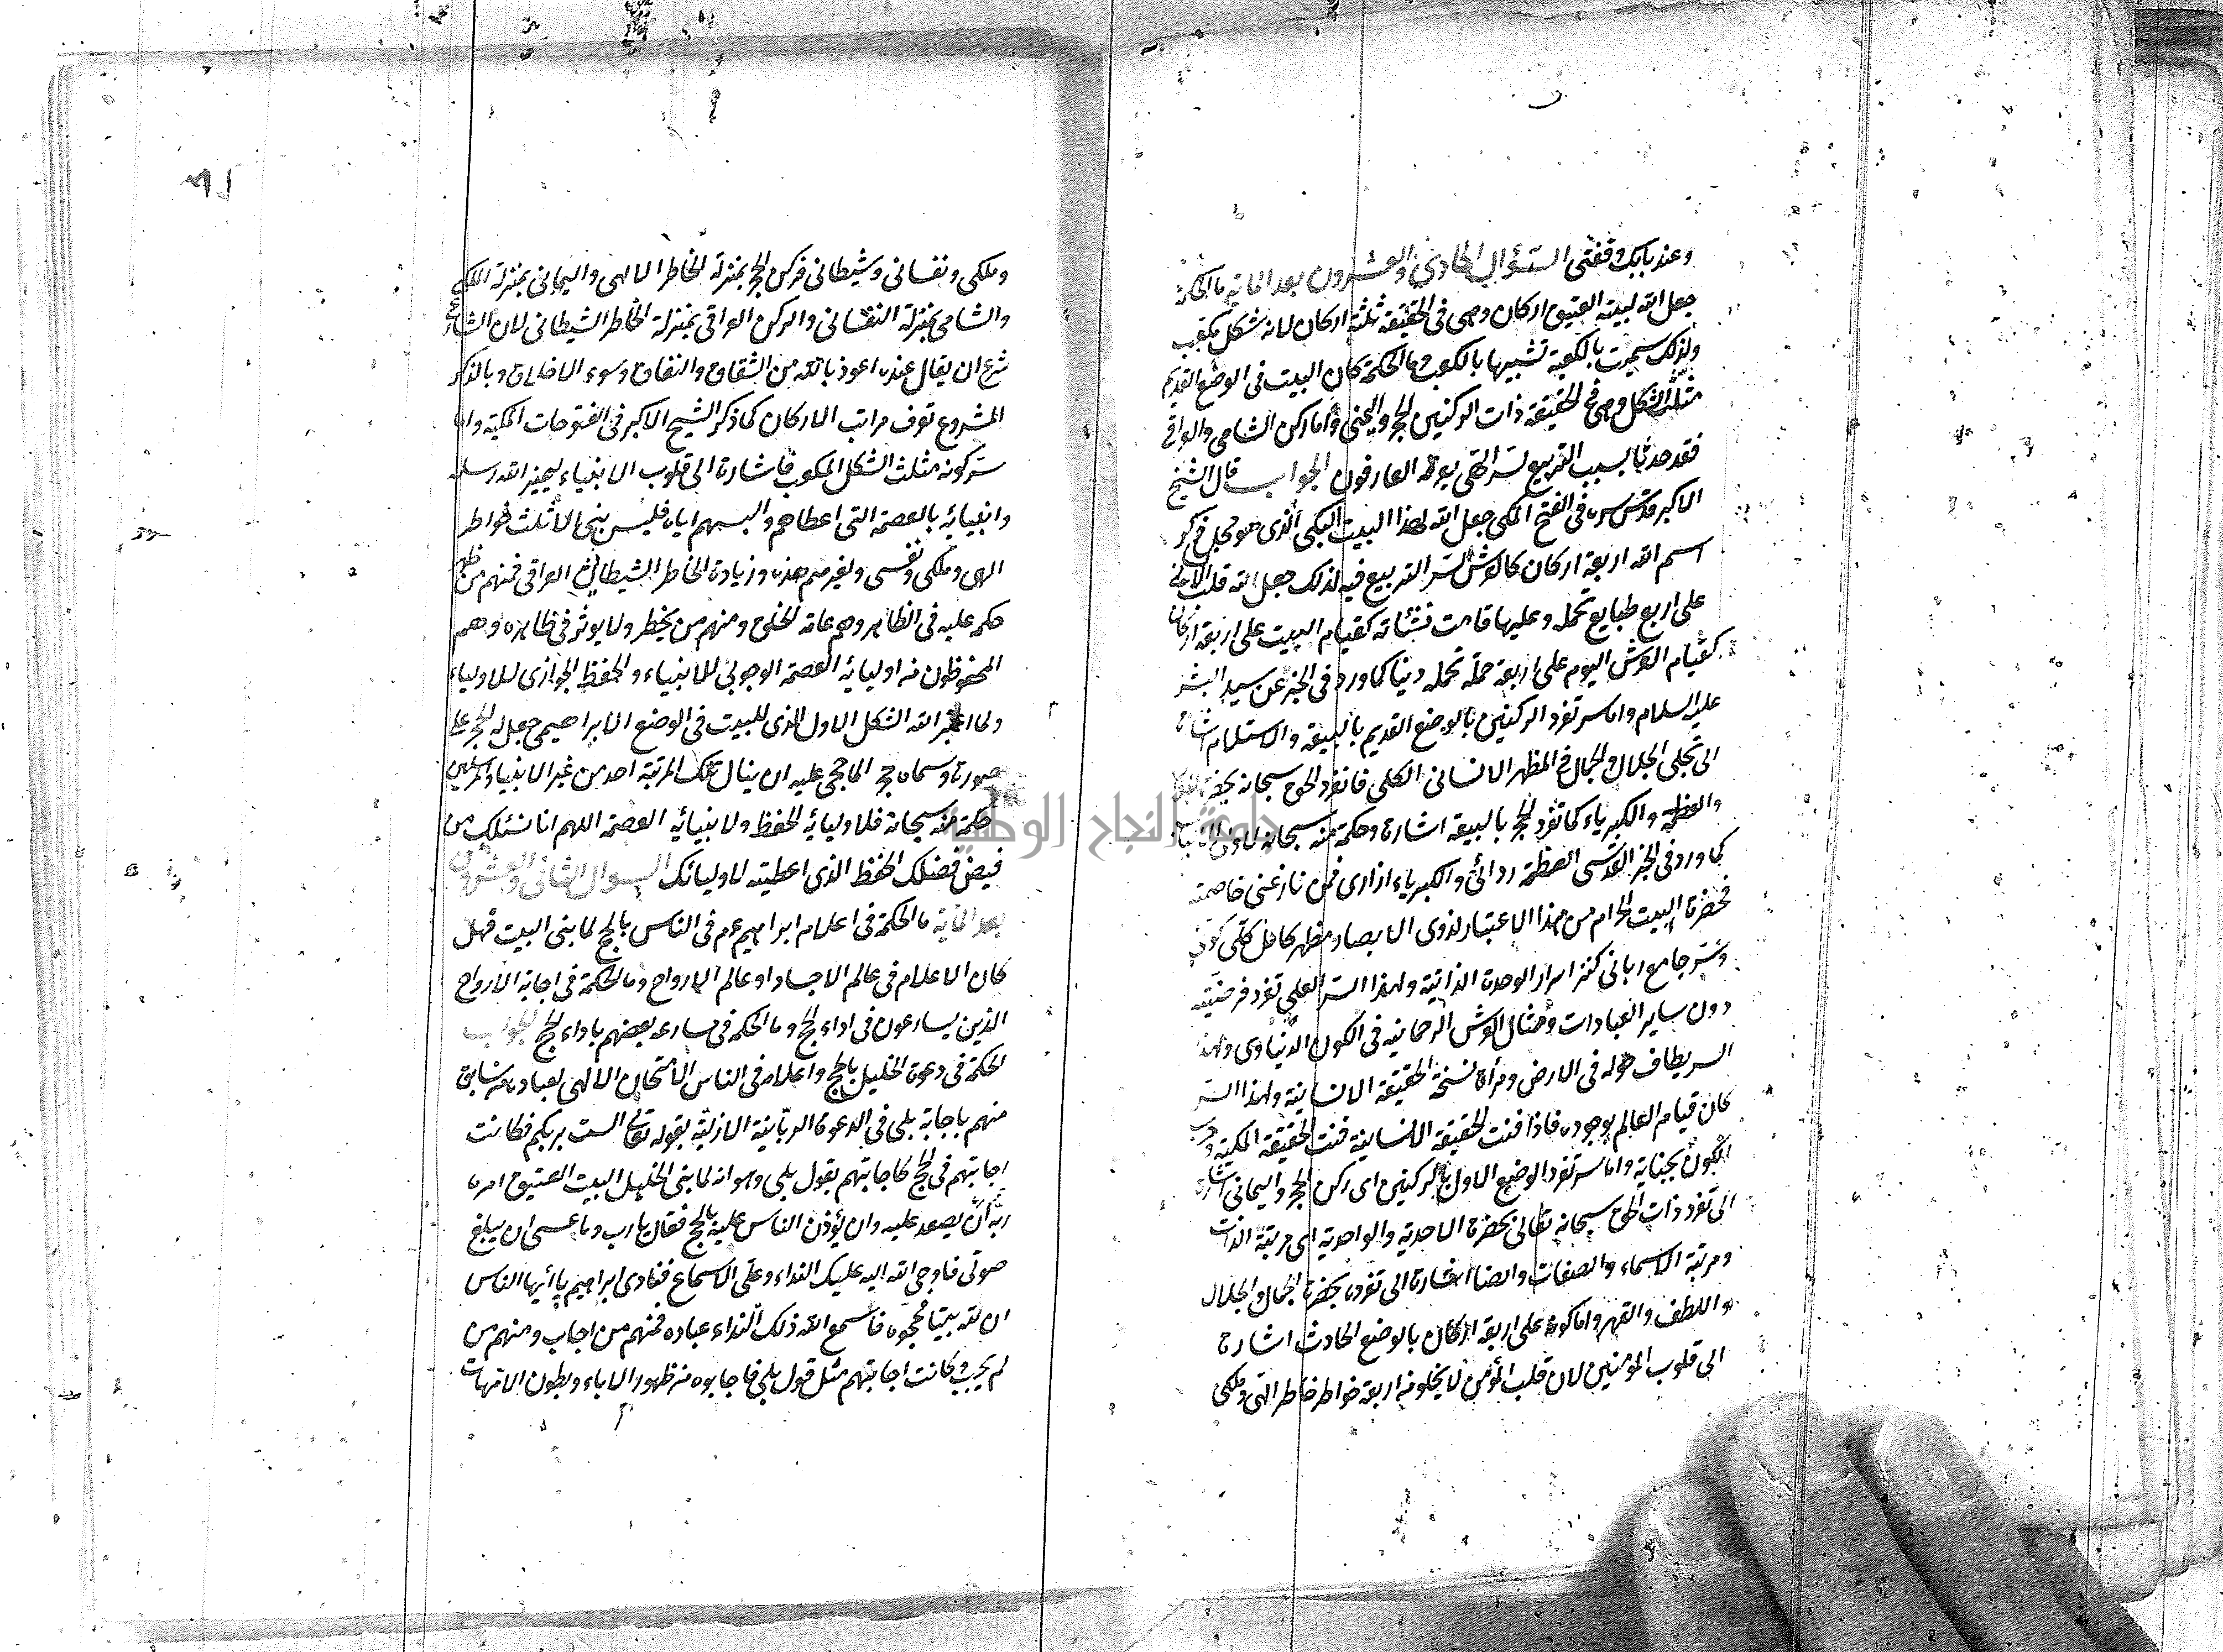 وعند بابك وقفتى السؤال الحادى والعشرون بعد الماية ما الحكمة
جعل الله لبيته العتيق اركان وهى فى الحقيقة ثلثة اركان لانه شكل مكعب
ولذلك سميت بالكعبة تشبيها بالكعب وما الحكمة كان البيت فى الوضع القديم
مثلث الشكل وهى فى الحقيقة ذات الركنين الحجر واليمنى واما ركن الشامى والعراقى
فقد حدثا بسبب التربيع لسر الهى يعرفه العارفون الجواب قال الشيخ
الاكبر قدس سره فى الفتح المكى جعل الله لهذا البيت البكى الذى هو محل ذكر
اسم الله اربعة اركان كالعرش لسر التربيع فيه لذلك جعل الله قلب
على اربع طبايع تحمله وعليها قامت نشئاته كقيام البيت على اربعة اركان
كقيام العرش اليوم على اربعة حملة تحمله دنيا كما ورد فى الخبر عن سيد البشر
عليه السلام واما سر تفرد الركنين بالوضع القديم بالبيعة والاستلام اشارة
الى تجلى الجلال والجمال فى المظهر الانسانى الكلى فانفرد الحق سبحانه
والعظمة والكبرياء كما تفرد الحجر بالبيعة اشارة وحكمة منه سبحانه
كما ورد فى الخبر القدسى العظمة ردائى والكبرياء ازارى فمن نازعنى خاصمته
فحضرة البيت الحرام من هذا الاعتبار لذوى الابصار مظهر كامل كلى
وسر جامع ربانى كنز اسرار الوحدة الذاتية ولهذا السر العلى تفرد فرضيته
دون ساير العبادات ومثال العرش الرحمانية فى الكون الدنياوى ولهذا
السر يطاف حوله فى الارض ومرأة نسخة الحقيقة الانسانية ولهذا السر
كان قيام العالم بوجوده فاذا فنت الحقيقة الانسانية فنت الحقيقة المكية
الكون بجنابه واما سر تفرد الوضع الاول بالركنين اى ركن الحجر واليمانى اشارة
الى تفرد ذات الحق سبحانه تعالى بحضرة الاحدية والواحدية اى مرتبة الذات
ومرتبة الاسماء والصفات وايضا اشارة الى تفرده بحضرة الجمال والجلال
واللطف والقهر واما كونه على اربعة اركان بالوضع الحادث اشارة
الى قلوب المومنين لان قلب المؤمن لا يخلو من اربعة خواطر خاطر الهى وملكى
وملكى ونفسانى وشيطانى فركن الحجر بمنزلة الخاطر الالهى واليمانى بمنزلة الملكى
والشامى بمنزلة النفسانى والركن العراقى بمنزلة الخاطر الشيطانى لان الشارع
شرع ان يقال عنده اعوذ بالله من الشقاق والنفاق وسوء الاخلاق وبالذكر
المشروع تعرف مراتب الاركان كما ذكر الشيخ الاكبر فى الفتوحات المكية واما
سر كونه مثلث الشكل المكعب فاشارة الى قلوب الانبياء ليميز الله رسله
وانبيائه بالعصمة التى اعطاهم والبسهم اياه فليس نبى الا ثلث خواطر
الهى وملكى ونفسى ولغيرهم هذه وزيادة الخاطر الشيطانى العراقى فمنهم من ظهر
حكمه عليه فى الظاهر وهم عامة الخلق ومنهم من يخطر ولا يوثر فى ظاهره وهم
المحفوظون من اوليائه العصمة الوجوبى للانبياء والحفظ الجوازى للاولياء
ولما اعتبر الله الشكل الاول الذى للبيت فى الوضع الابراهيمى جعل له الحجر على
صورته وسماه حجر لما حجر عليه ان ينال تلك المرتبة احد من غير الانبياء والمرسلين
حكمة منه سبحانه فلاوليائه الحفظ ولانبيائه العصمة اللهم انا نسئلك من
فيض فضلك الحفظ الذى اعطيته لاوليائك السوال الثانى والعشرون
بعد الماية ما الحكمة فى اعلام ابراهيم عم فى الناس بالحج لما بنى البيت فهل
كان الاعلام فى عالم الاجساد او عالم الارواح وما الحكمة فى اجابة الارواح
الذين يسارعون فى اداء الحج وما الحكمة فى مسارعة بعضهم باداء الحج الجواب
الحكمة فى دعوة الخليل بالحج واعلامه فى الناس الامتحان الالهى لعباده من سابق
منهم باجابة بلى فى الدعوة الربانية الازلية بقوله تعالى الست بربكم فكانت
اجابتهم فى الحج كاجابتهم بقول بلى وهو انه لما بنى الخليل البيت العتيق امره
ربه ان يصعد عليه وان يؤذن الناس عليه بالحج فقال يا رب وما عسى ان يبلغ
صوتى فاوحى الله اليه عليك النداء وعلى الاسماع فنادى ابراهيم يا ايها الناس
ان لله بيتا فحجوه فاسمع الله ذلك النداء عباده فمنهم من اجاب ومنهم من
لم يجب وكانت اجابتهم مثل قول بلى فاجابوه من ظهور الاباء وبطون الامهات
جامعة النجاح الوطنية